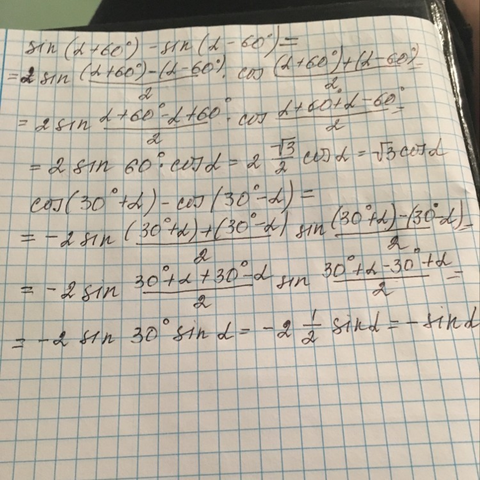 sin(α+60°)-sin(α-60°)=
=2 sin ((α+60°)-(α-60°))/2 · cos ((α+60°)+(α-60°))/2=
=2 sin (α+60°-α+60°)/2 · cos (α+60+α-60°)/2=
=2 sin 60°·cosα=2 √3/2 cosα=√3cosα
cos(30°+α)-cos(30°-α)=
=-2 sin ((30°+α)+(30°-α))/2 sin ((30°+α)-(30°-α))/2=
=-2 sin (30°+α+30°-α)/2 sin (30°+α-30°+α)/2=
=-2 sin 30° sin α=-2 1/2 sinα=-sinα